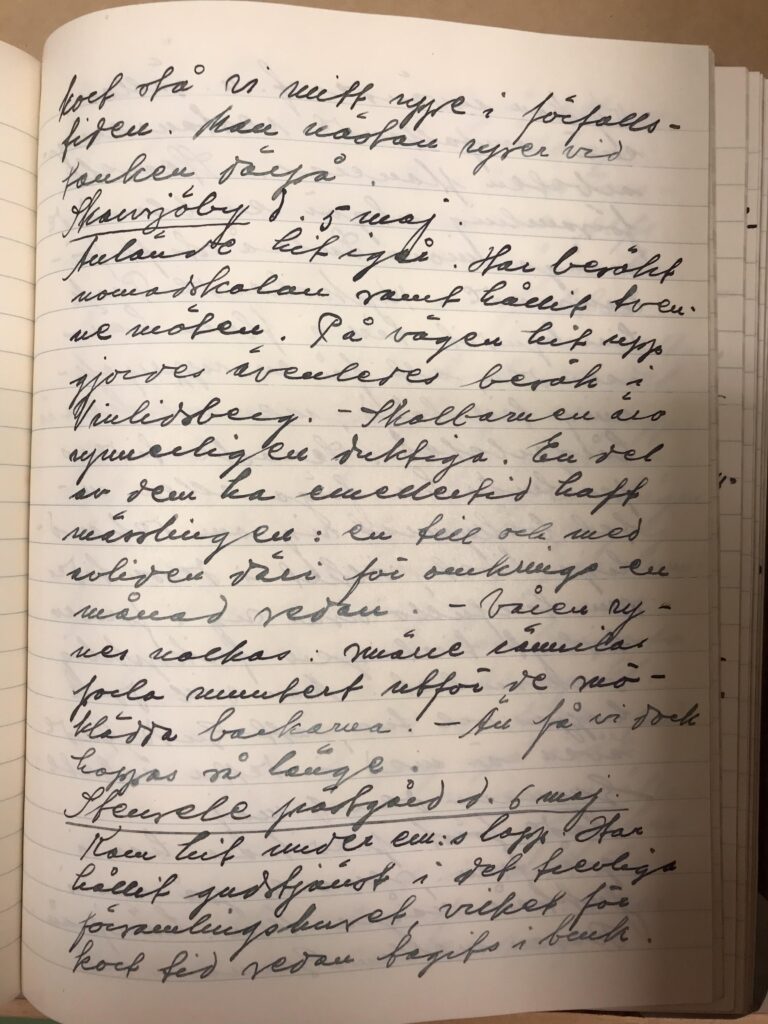 kort stå vi mitt uppe i förfalls-
tiden. Man nästan ryser vid
tanken därpå.
Skansjöby d. 5 maj.
Anlände hit igår. Har besökt
nomadskolan samt hållit tven-
ne möten. På vägen hit upp
gjordes ävenledes besök i
Vinlidsberg. - Skolbarnen äro
synnerligen duktiga. En del
av dem ha emellertid haft
mässlingen: en till och med
avliden däri för omkring en
månad sedan. - Våren sy-
nes nalkas: smärre
porla muntert utför de snö-
klädda backarna. - Än få vi dock
hoppas så länge.
Stensele prästgård d. 6 maj.
Kom hit under em:s lopp. Har
hållit gudstjänst i det trevliga
församlingshuset, vilket för
kort tid sedan tagits i bruk.